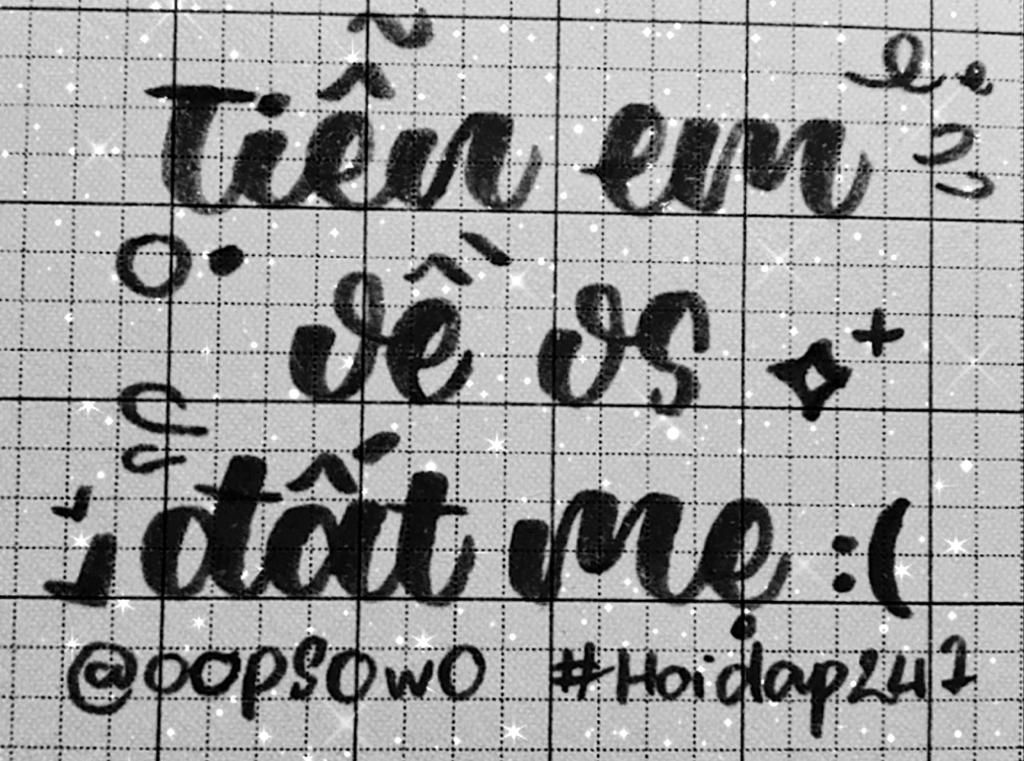 Tiễn em
về vs
đất mẹ :(
@oopsowo #Hoidap247